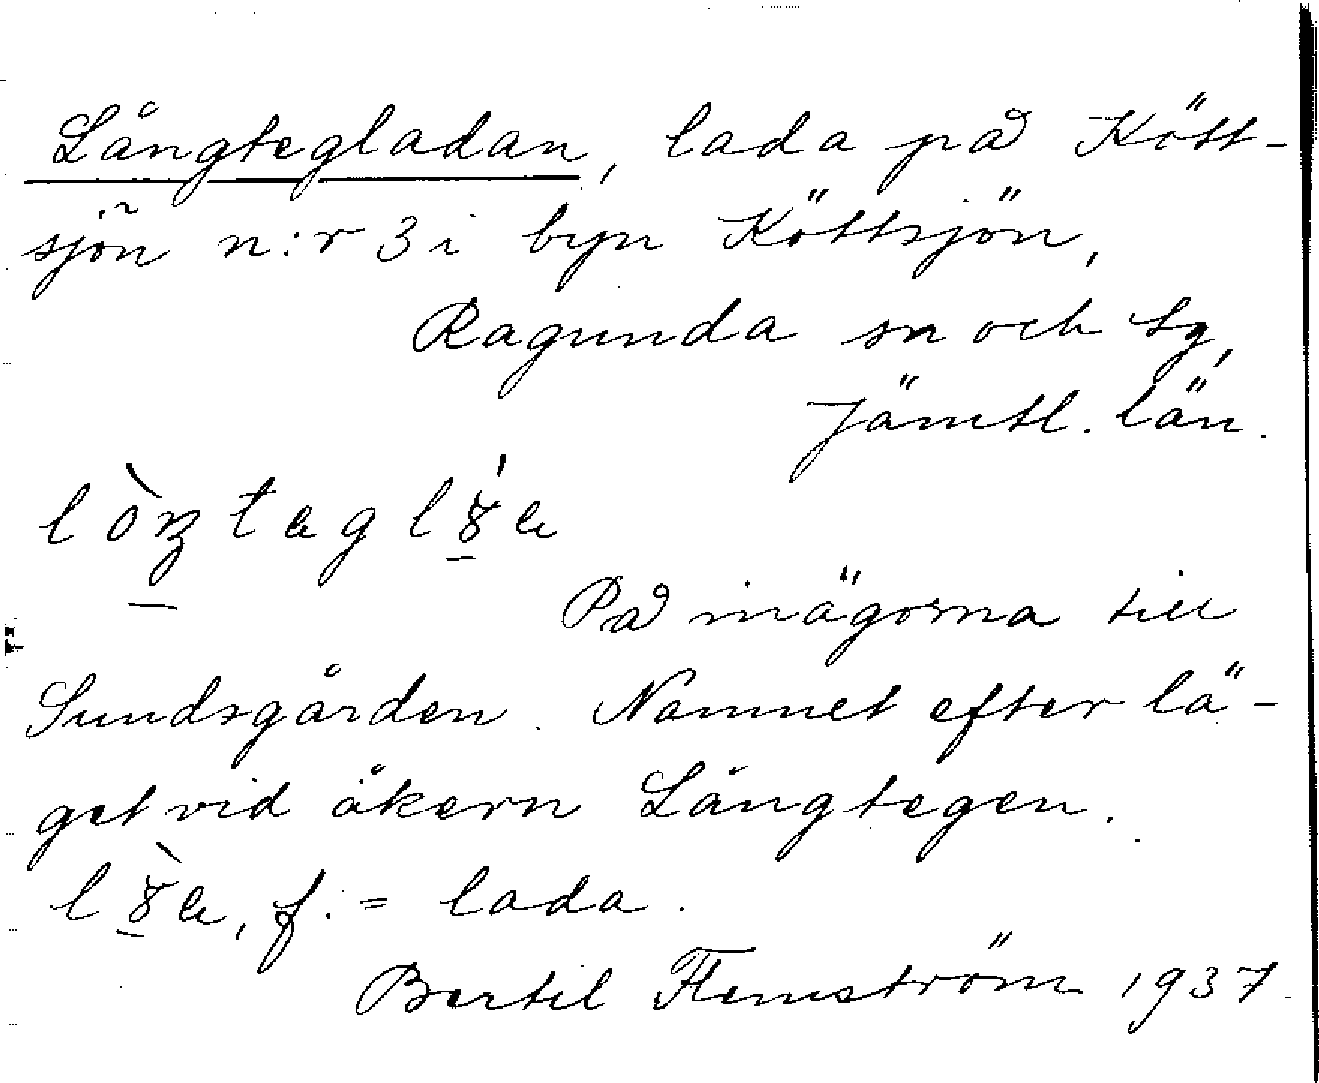 Långtegladan, lada på Kött-
sjön n:r 3 i byn Köttsjön,
Ragunda sn och tg,
Jämtl. län.
På inägorna till
Sundsgården. Namnet efter lä-
get vid åkern Långtegen.
f. = lada.
Bertil Flemström 1937